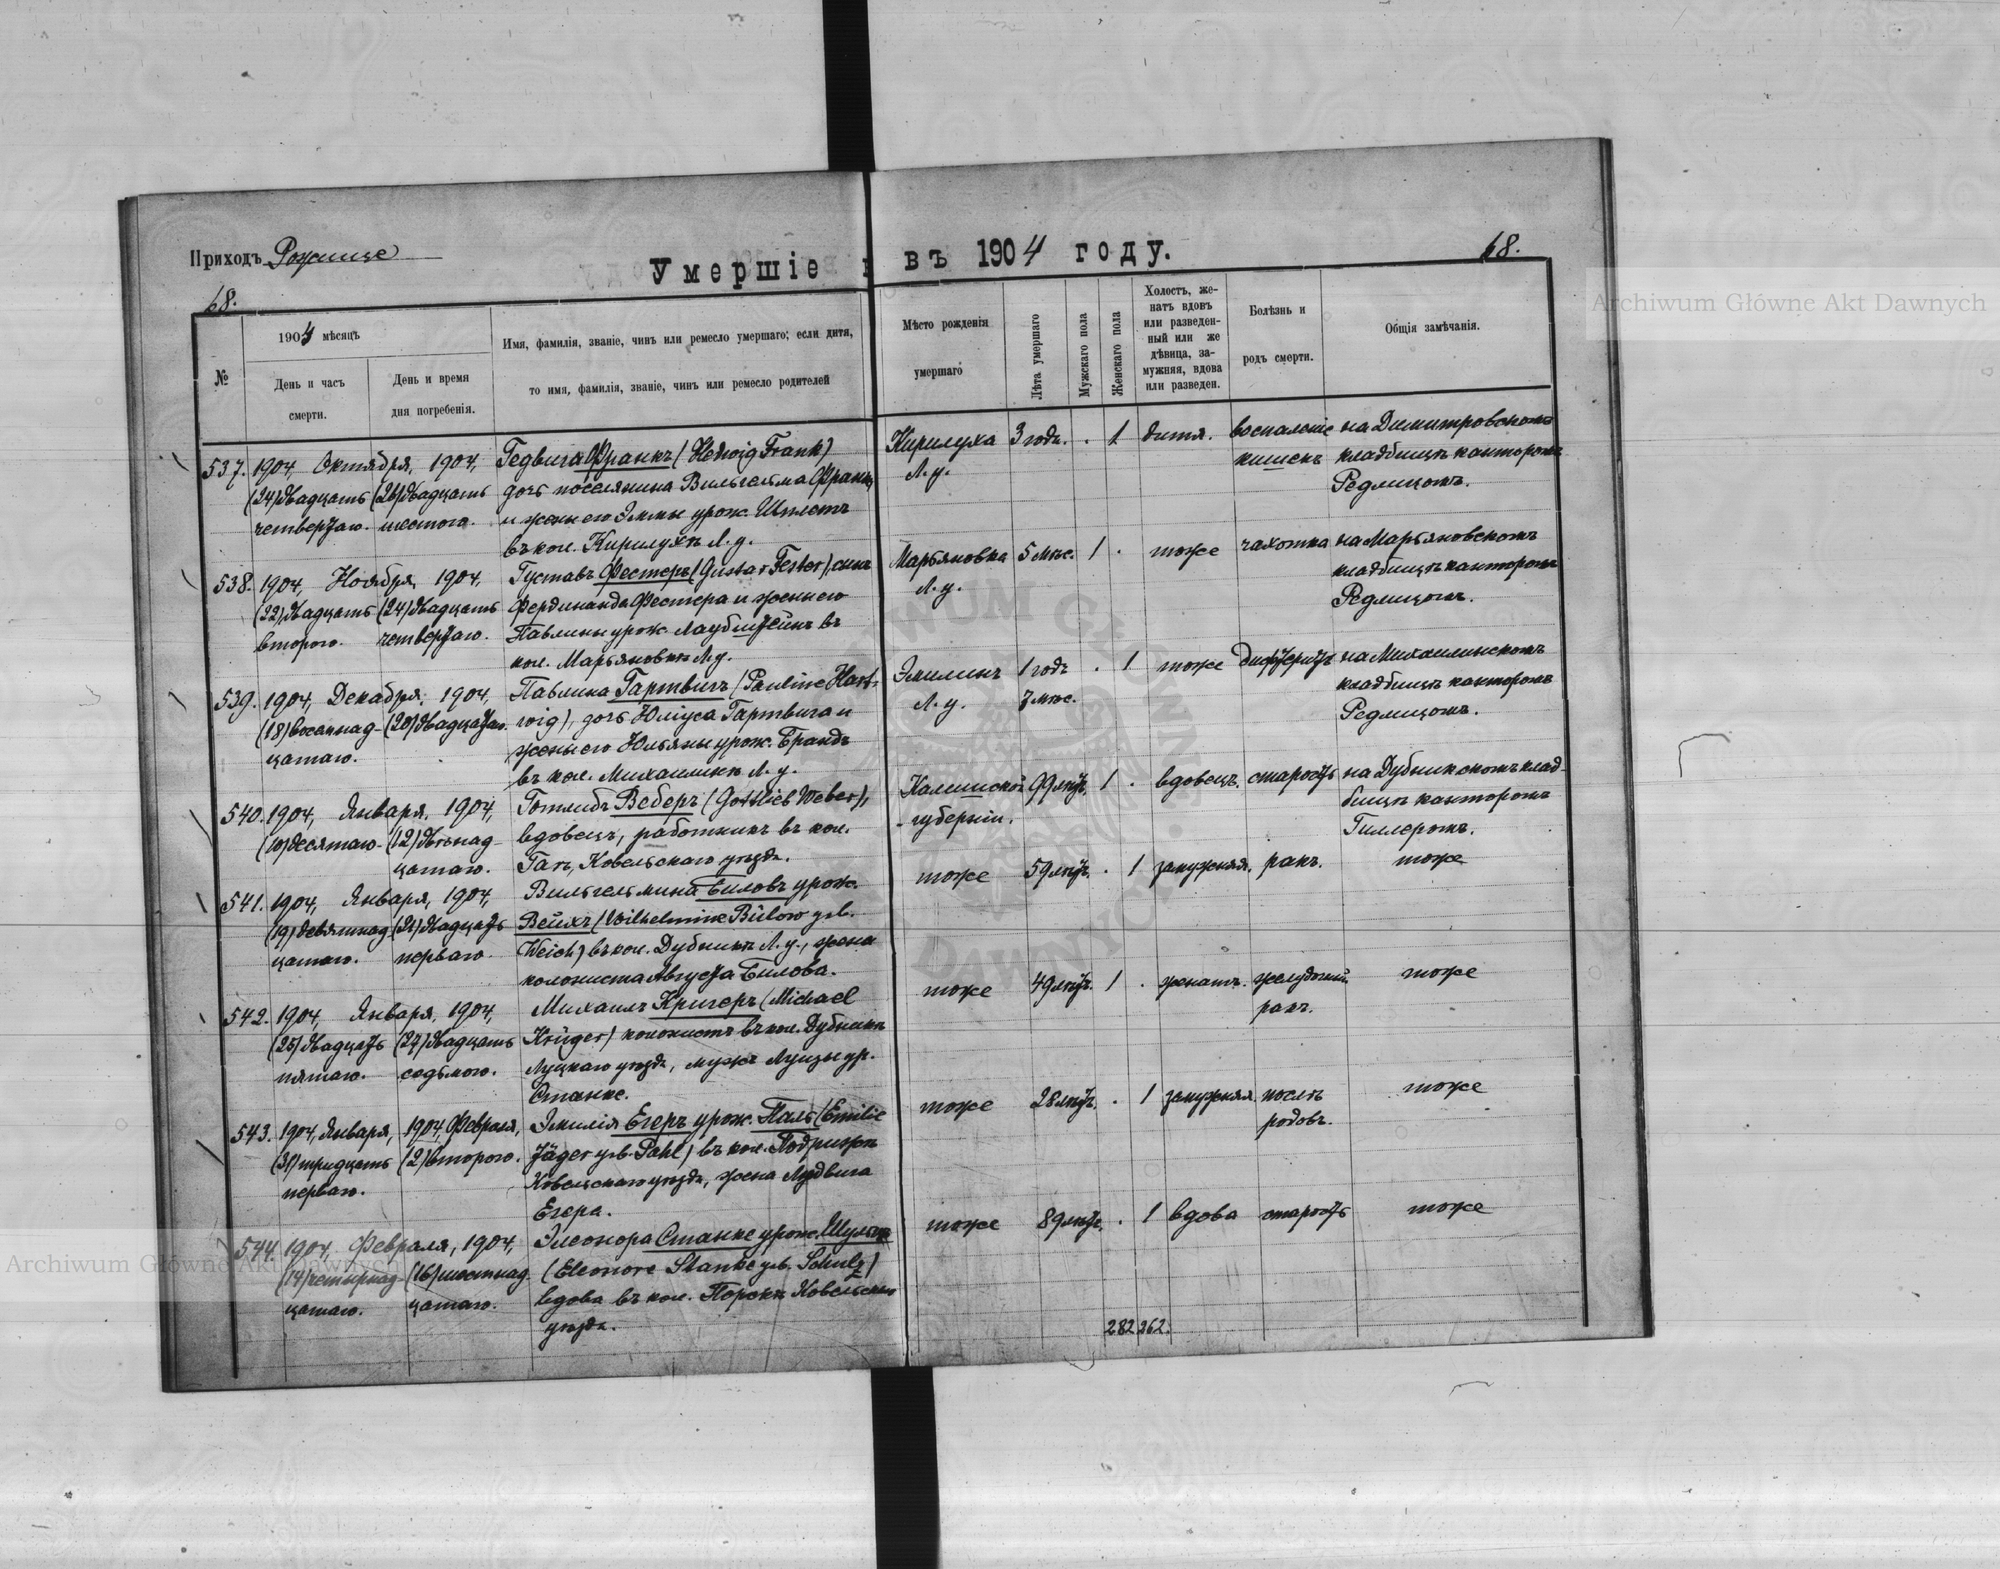 Приходъ Рожище
Умершіе въ 1904 году.
68.
68.
№
1904 мѣсяцъ
День и часъ смерти.
День и время дня погребенія.
Имя, фамилія, званіе, чинъ или ремесло умершаго; если дитя,
то имя, фамилія, званіе, чинъ или ремесло родителей
Мѣсто рожденія
умершаго
Лѣта умершаго
Мужскаго пола
Женскаго пола
Холостъ, же-
натъ вдовъ
или разведен-
ный или же
дѣвица, за-
мужняя, вдова
или разведен.
Болѣзнь и
родъ смерти.
Общія замѣчанія.
537. 1904, Октября, 1904, Гедвига Франкъ (Hedwig Frank) Кирилуха 3 года. . 1 дитя. воспаленіе на Димитровскомъ
(24) двадцать (26) двадцать дочь поселянина Вильгельма Франкъ Л. у. кишекъ кладбищѣ канторомъ
четвертаго. шестого. и жены его Эммы урож. Редлицомъ.
въ кол. Кирилухѣ Л. у.
538. 1904, Ноября, 1904, Густавъ Фестеръ (Gustav Fester), сынъ Марьяновка 5 мѣс. 1 . тоже чахотка на Марьяновскомъ
(22) двадцать (24) двадцать Фердинанда Фестера и жены его Л. у. кладбищѣ канторомъ
второго. четвертаго. Павлины урож. въ Редлицомъ.
кол. Марьяновкѣ Л. у.
539. 1904, Декабря, 1904, Павлина Гартвигъ (Pauline Hart- Эмилинъ 1 годъ . 1 тоже дифтеритъ на Михаилинскомъ
(18) восемнад- (20) двадцатаго. wig), дочь Юліуса Гартвига и Л. у. 7 мѣс. кладбищѣ канторомъ
цатаго. жены его Юльяны урож. Брандъ Редлицомъ.
въ кол. Михаилинѣ Л. у.
540. 1904, Января, 1904, Готлибъ Веберъ (Gottlieb Weber), Калишской 99 лѣтъ. 1 . вдовецъ. старость на Дубникскомъ клад-
(10) десятаго (12) двѣнад- вдовецъ, работникъ въ кол. губерніи. бищѣ канторомъ
цатаго. Гать, Ковельскаго уѣзда. Гиллеромъ.
541. 1904, Января, 1904, Вильгельмина Биловъ урож. тоже 59 лѣтъ. . 1 замужняя. ракъ. тоже
(19) девятнад- (21) двадцать Вейхъ (Wilhelmine Bülow geb.
цатаго. перваго. Weich) въ кол. Дубникъ Л. у., жена
колониста Августа Билова.
542. 1904, Января, 1904, Михаилъ Кригеръ (Michael тоже 49 лѣтъ. 1 . женатъ. желудочный тоже
(25) двадцать (27) двадцать Krüger) колонистъ въ кол. Дубникъ ракъ.
пятаго. седьмого. Луцкаго уѣзда, мужъ Луизы ур.
Станке.
543. 1904, Января, 1904, Февраля, Эмилія Егеръ урож. Паль (Emilie тоже 28 лѣтъ. . 1 замужняя послѣ тоже
(31) тридцать (2) второго. Jäger geb. Pahl) въ кол. родовъ.
перваго. Ковельскаго уѣзда, жена Людвига
Егера.
544. 1904, Февраля, 1904, Элеонора Станке урож. Шульцъ тоже 89 лѣтъ. . 1 вдова старость тоже
(14) четырнад- (16) шестнад- (Eleonore Stanke geb. Schulz)
цатаго. цатаго. вдова въ кол. Ковельскаго
уѣзда.
282 262.
Archiwum Główne Akt Dawnych
Archiwum Główne Akt Dawnych